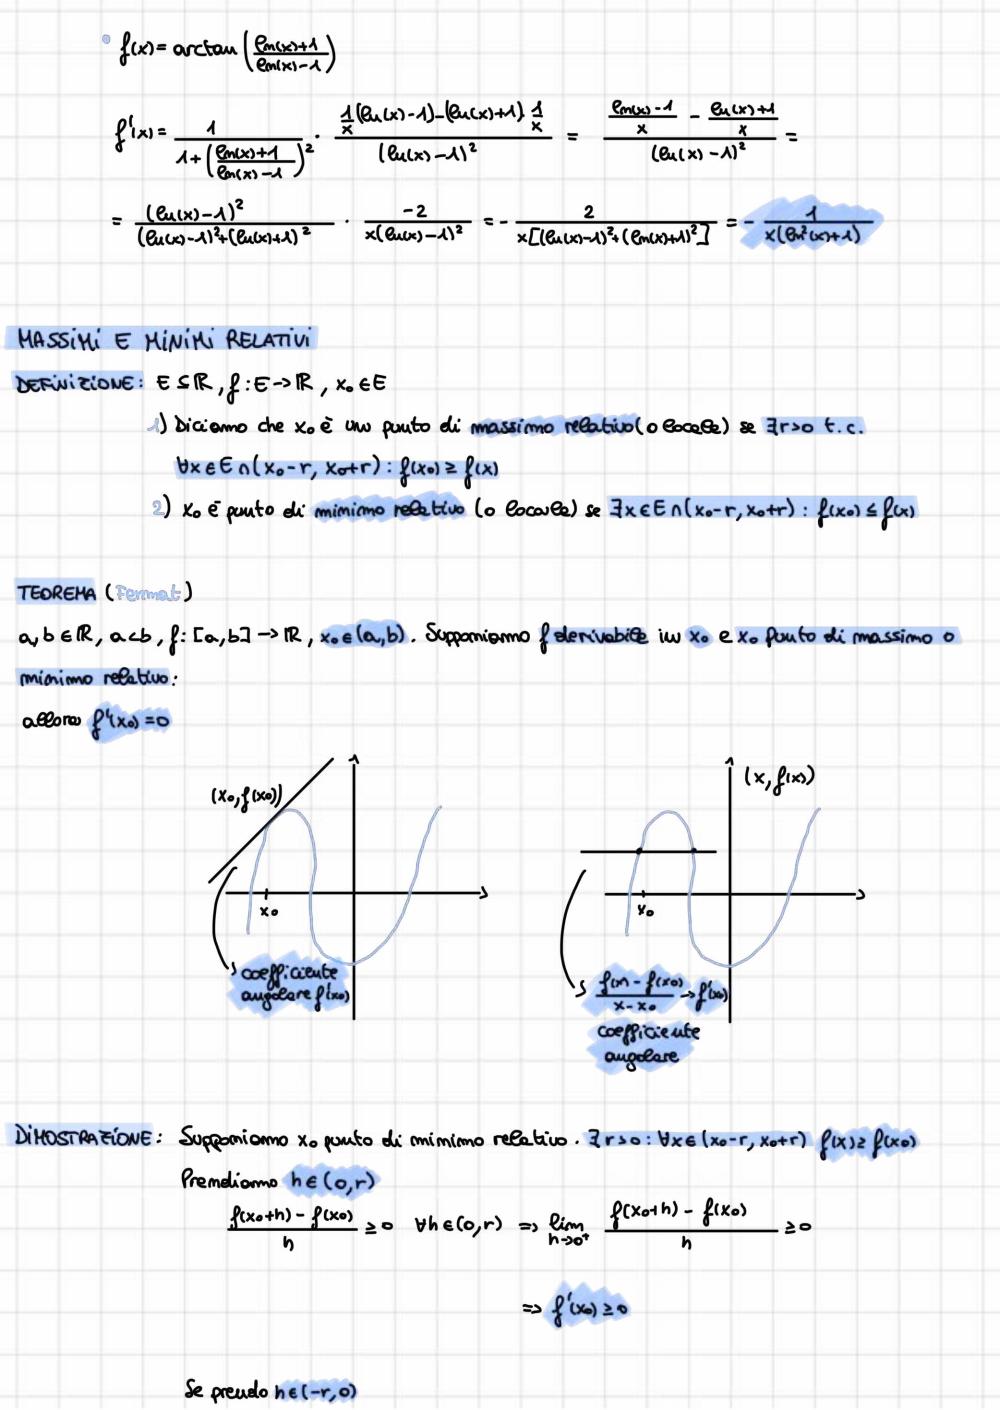 • f(x) = arctan ( (ln(x)+1)/(ln(x)-1) )
f'(x) = 1/(1+((ln(x)+1)/(ln(x)-1))²) · (1/x (ln(x)-1) - (ln(x)+1) 1/x)/((ln(x)-1)²) = ((ln(x)-1)/x - (ln(x)+1)/x)/((ln(x)-1)²) =
= (ln(x)-1)²/((ln(x)-1)²+(ln(x)+1)²) · -2/(x(ln(x)-1)²) = - 2/(x[(ln(x)-1)²+(ln(x)+1)²]) = - 1/(x(ln²(x)+1))
MASSIMI E MINIMI RELATIVI
DEFINIZIONE: E ⊆ ℝ, f: E -> ℝ, x₀ ∈ E
1) Diciamo che x₀ è un punto di massimo relativo (o locale) se ∃r>0 t.c.
∀x ∈ E ∩ (x₀-r, x₀+r) : f(x₀) ≥ f(x)
2) x₀ è punto di minimo relativo (o locale) se ∃x ∈ E ∩ (x₀-r, x₀+r) : f(x₀) ≤ f(x)
TEOREMA (Fermat)
a, b ∈ ℝ, a<b, f: [a,b] -> ℝ, x₀ ∈ (a,b). Supponiamo f derivabile in x₀ e x₀ punto di massimo o
minimo relativo:
allora f'(x₀) = 0
(x₀, f(x₀))
x₀
coefficiente
angolare f'(x₀)
(x, f(x))
x₀
(f(x) - f(x₀))/(x - x₀) -> f'(x₀)
coefficiente
angolare
DIMOSTRAZIONE: Supponiamo x₀ punto di minimo relativo. ∃r>0 : ∀x ∈ (x₀-r, x₀+r) f(x) ≥ f(x₀)
Prendiamo h ∈ (0,r)
(f(x₀+h) - f(x₀))/h ≥ 0 ∀h ∈ (0,r) => lim h->0⁺ (f(x₀+h) - f(x₀))/h ≥ 0
=> f'(x₀) ≥ 0
Se prendo h ∈ (-r,0)